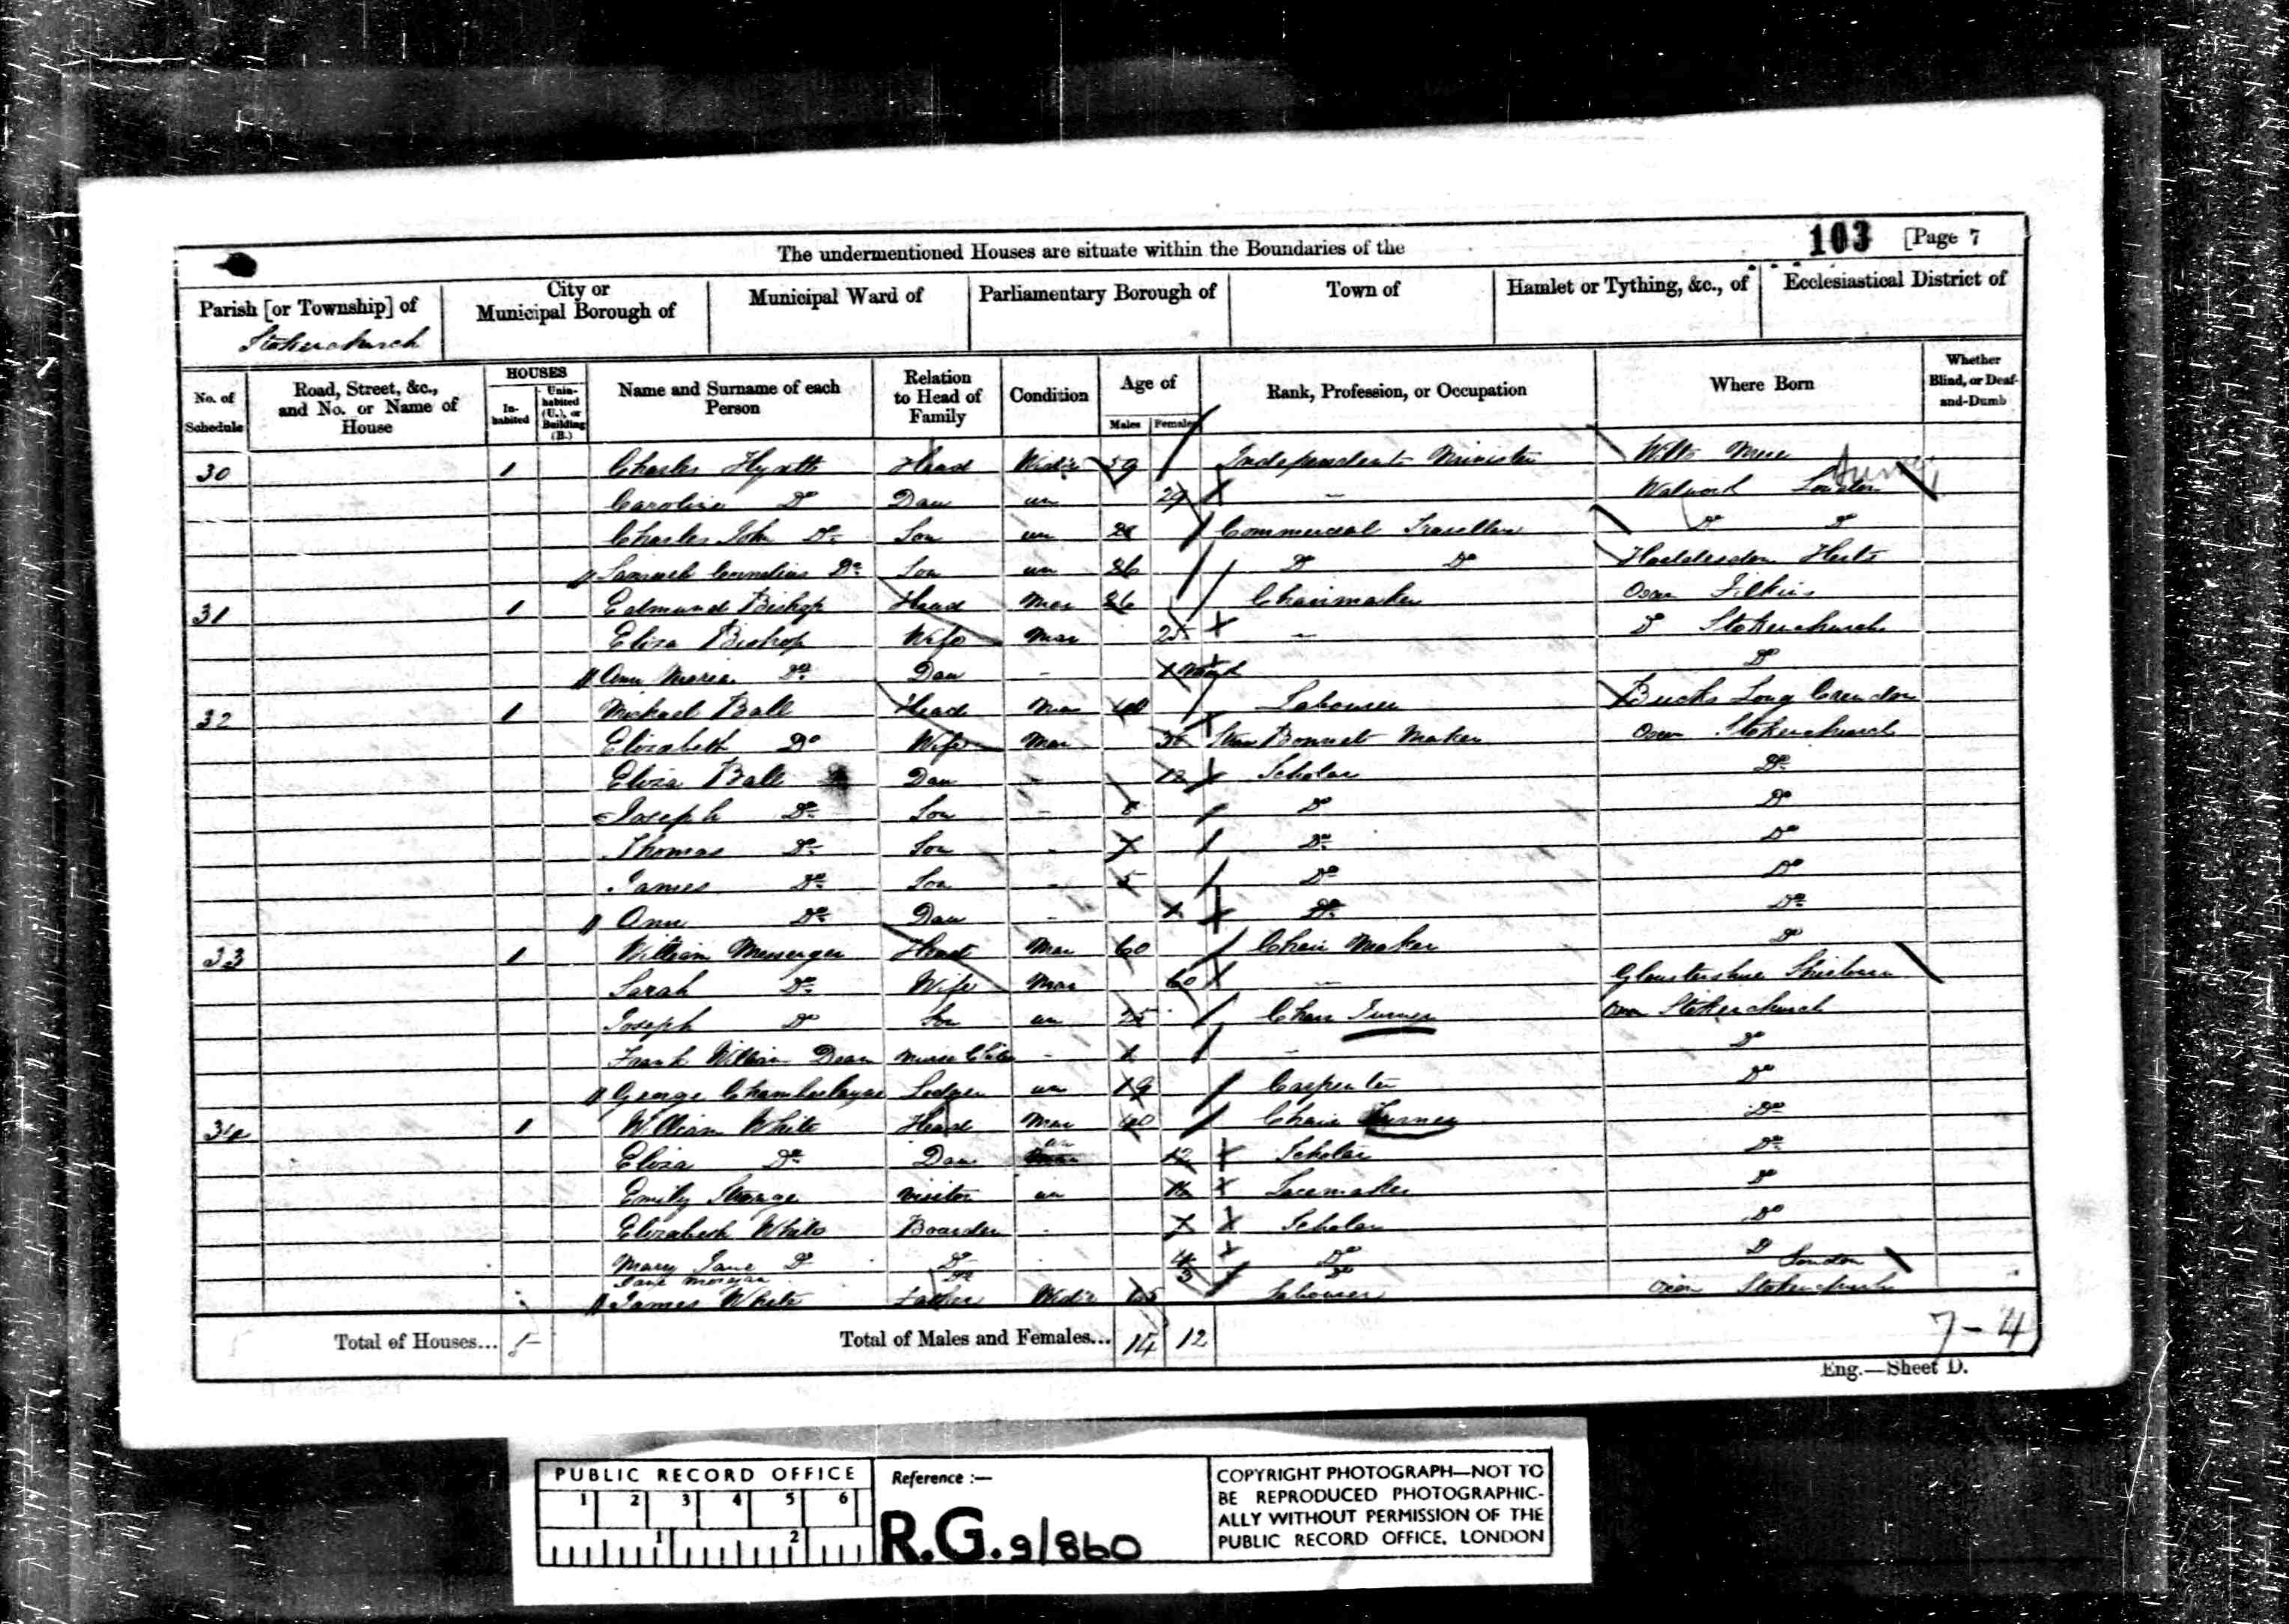 103 [Page 7
The undermentioned Houses are situate within the Boundaries of the
Parish [or Township] of
City or Municipal Borough of
Municipal Ward of
Parliamentary Borough of
Town of
Hamlet or Tything, &c., of
Ecclesiastical District of
Stokenchurch
No. of Schedule
Road, Street, &c., and No. or Name of House
HOUSES
In-habited
Unin-habited (U.), or Building (B.)
Name and Surname of each Person
Relation to Head of Family
Condition
Age of
Males
Females
Rank, Profession, or Occupation
Where Born
Whether Blind, or Deaf-and-Dumb
30 1 Charles Hyatt Head Widr 59 Independent Minister Wilts Mere
Caroline Do Dau un 29 - Walworth London
Charles John Do Son un Commercial Traveller Do Do
Samuel Cornelius Do Son un 26 Do Do Hoddesdon Herts
31 1 Edmund Bishop Head Mar 26 Chairmaker Oxon Filkins
Eliza Bishop Wife Mar 25 - Do Stokenchurch
Ann Maria Do Dau - 1 Month Do
32 1 Michael Ball Head Mar 40 Labourer Bucks Long Crendon
Elizabeth Do Wife Mar Straw Bonnet Maker Oxon Stokenchurch
Eliza Ball Dau - 12 Scholar Do
Joseph Do Son - 8 Do Do
Thomas Do Son - 7 Do Do
James Do Son - 5 Do Do
Ann Do Dau - Do Do
33 1 William Messenger Head Mar 60 Chair Maker Do
Sarah Do Wife Mar 60 - Gloustershire
Joseph Do Son un Chair Turner Oxon Stokenchurch
Frank William Dean Nurse Child - 1 - Do
George Chamberlayne Lodger un 19 Carpenter Do
34 1 William White Head Mar 40 Chair Turner Do
Eliza Do Dau un 12 Scholar Do
Emily Strange Visitor un Lacemaker Do
Elizabeth White Boarder - 7 Scholar Do
Mary Jane Do Do 4 Do Do
Jane Morgan Do 3 Do London
James White Father Widr Labourer Oxon Stokenchurch
Total of Houses... 5 Total of Males and Females... 14 12
7-4
Eng.—Sheet D.
PUBLIC RECORD OFFICE
1 2 3 4 5 6
1 2
Reference :—
R.G. 9/860
COPYRIGHT PHOTOGRAPH—NOT TO
BE REPRODUCED PHOTOGRAPHIC-
ALLY WITHOUT PERMISSION OF THE
PUBLIC RECORD OFFICE, LONDON